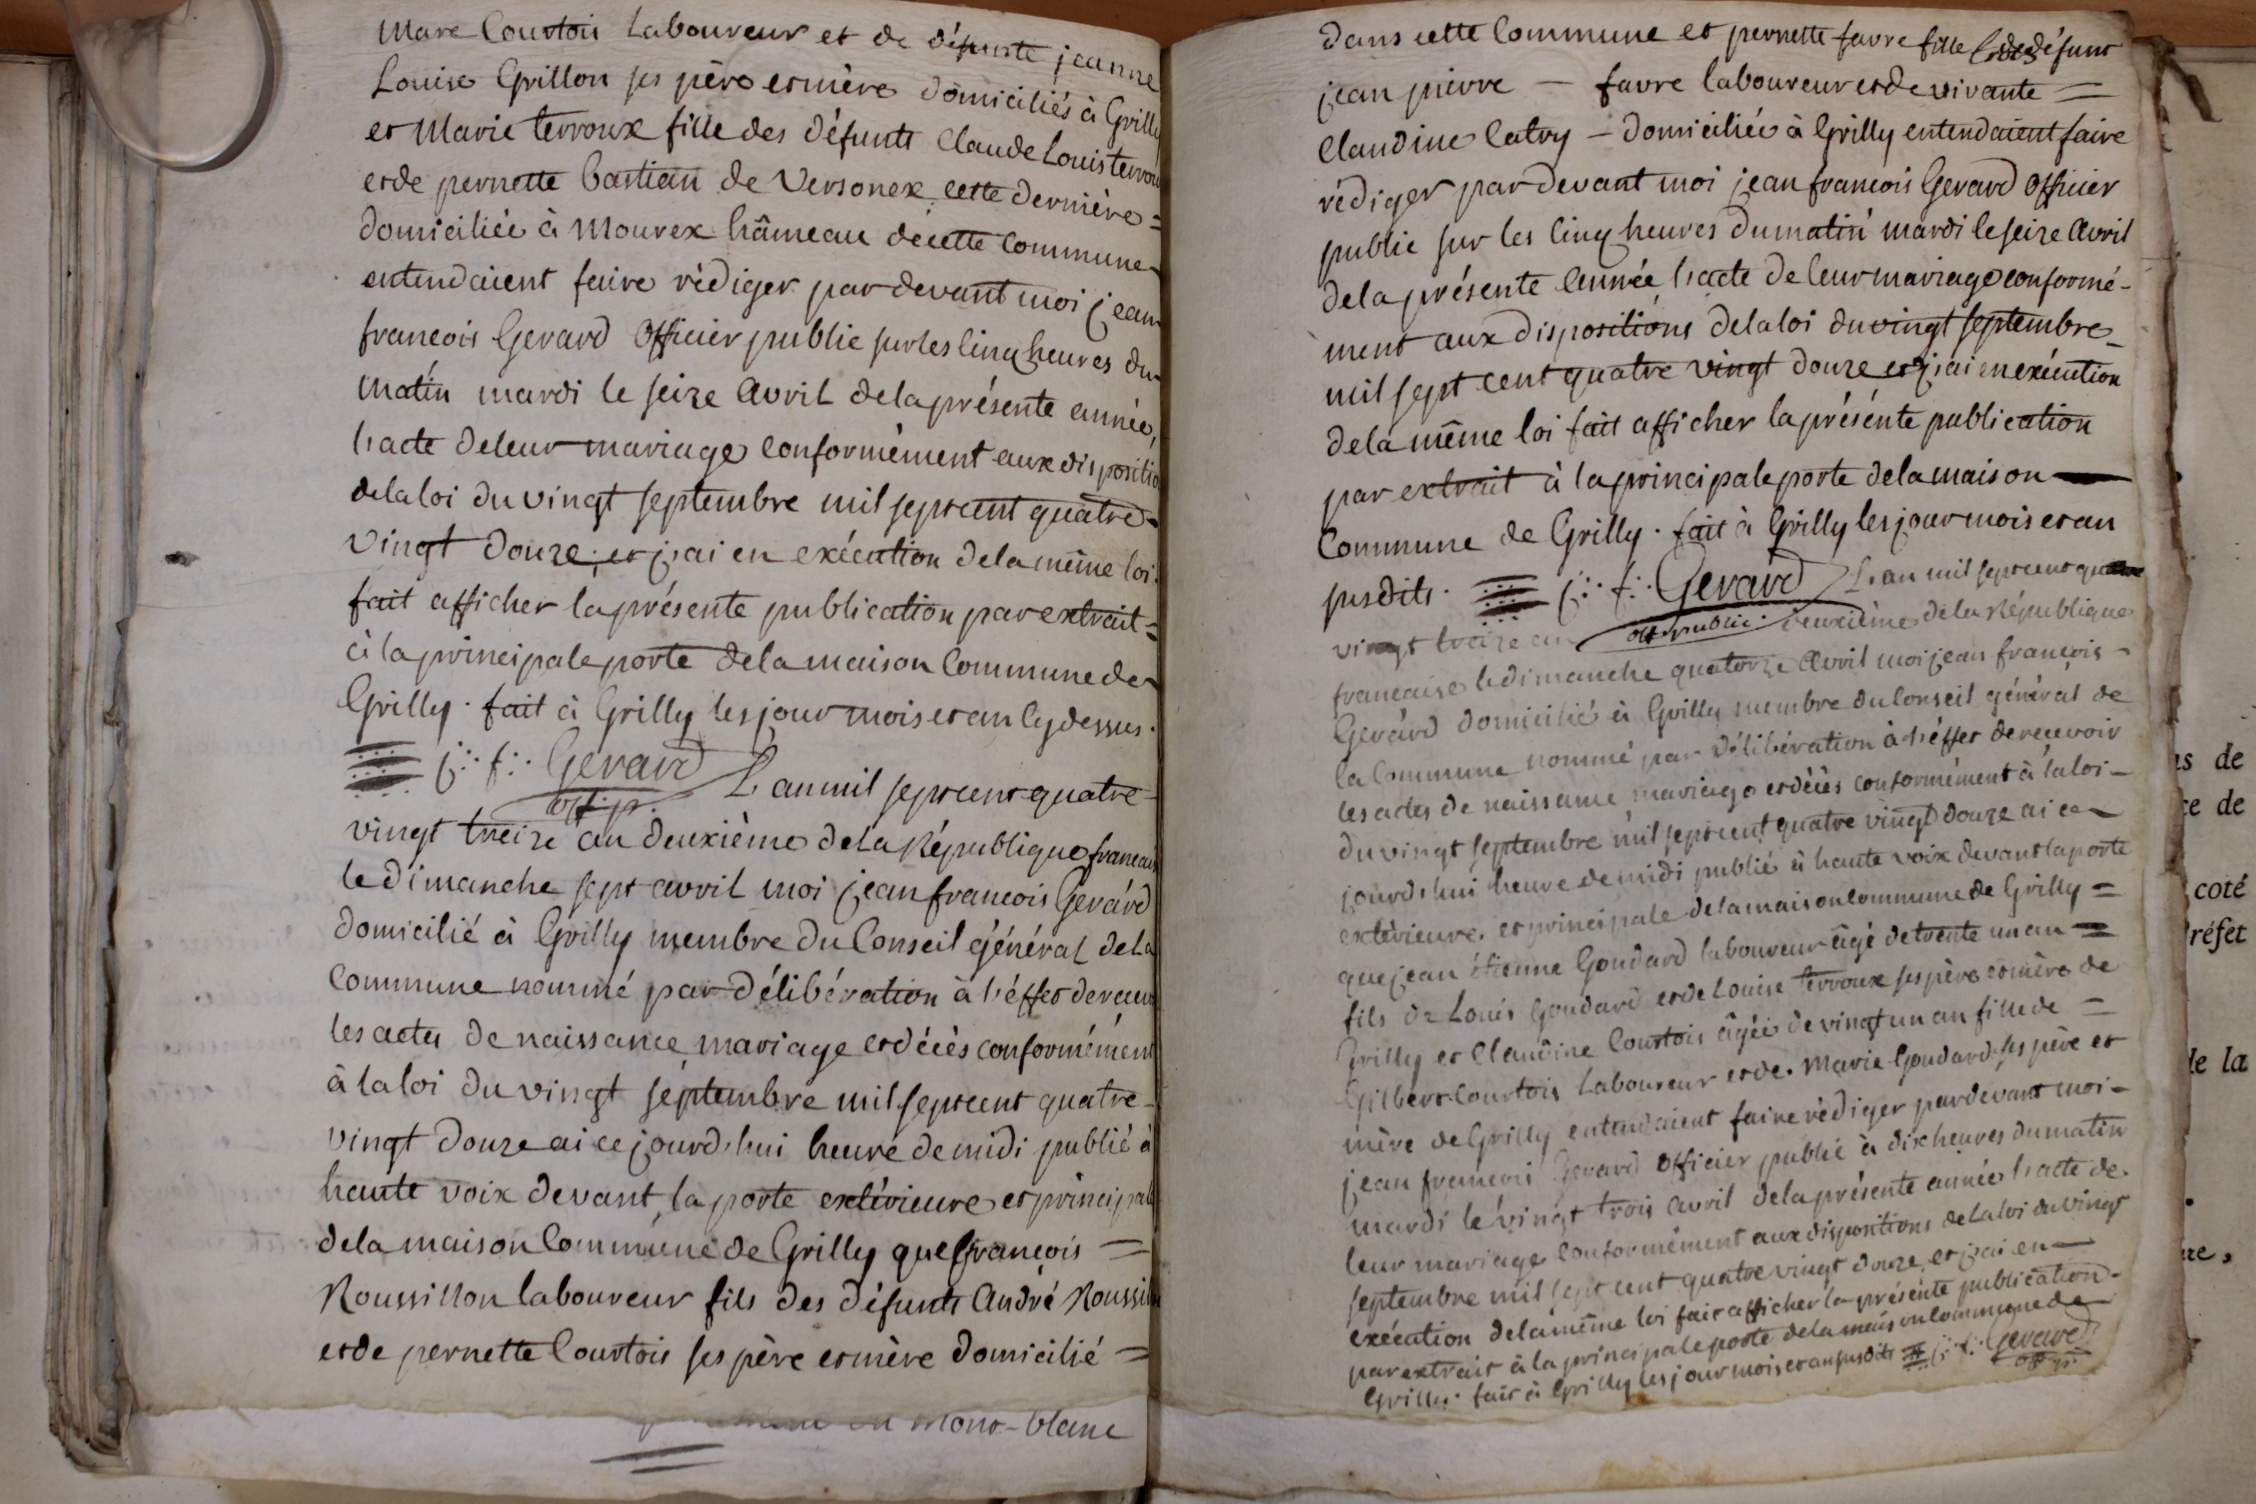 Marc Courtois Laboureur et de défunte jeanne
Louise Grillon ses père et mère domiciliés à Grilly
et Marie terroux fille des défunts Claude Louis terroux
et de pernette bastian de Versonex cette dernière =
domiciliée à Mourex hâmeau de cette Commune
entendaient faire rédiger par devant moi jean
francois Gerard Officier public sur les cinq heures du
matin mardi le seize Avril de la présente année,
l'acte de leur mariage conformément aux dispositio
de la loi du vingt septembre mil sept cent quatre
vingt douze; et j'ai en exécution de la même loi
fait afficher la présente publication par extrait =
à la principale porte de la maison Commune de
Grilly. fait à Grilly les jour mois et an cy dessus.
j: f: Gerard L'an mil sept cent quatre
off. p.
vingt treize an deuxième de la République francais
le dimanche sept avril moi jean francois Gerard
domicilié à Grilly membre du Conseil général de la
Commune nommé par délibération à l'éffet de recev
les actes de naissance mariage et décès conformément
à la loi du vingt septembre mil sept cent quatre
vingt douze ai ce jourd'hui heure de midi publié à
haute voix devant la porte extérieure et principale
de la maison Commune de Grilly que francois =
Roussillon laboureur fils des défunts André Roussill
et de pernette Courtois ses père et mère domicilié =
en Mont-blanc
dans cette Commune et pernette favre fille de défunt
jean pierre — favre laboureur et de vivante =
Claudine Catry — domiciliée à Grilly entendaient faire
rédiger par devant moi jean francois Gerard Officier
public sur les cinq heures du matin mardi le seize Avril
de la présente année l'acte de leur mariage conformé-
ment aux dispositions de la loi du vingt septembre
mil sept cent quatre vingt douze et j'ai en exécution
de la même loi fait afficher la présente publication
par extrait à la principale porte de la maison
Commune de Grilly. fait à Grilly les jour mois et an
susdits. j: f: Gerard L'an mil sept cent quatre
off. public.
vingt treize an deuxième de la République
francaise le dimanche quatorze Avril moi jean françois
Gerard domicilié à Grilly membre du Conseil général de
la Commune nommé par délibération à l'éffet de recevoir
les actes de naissance mariage et décès conformément à la loi
du vingt septembre mil sept cent quatre vingt douze ai ce
jourd'hui heure de midi publié à haute voix devant la porte
extérieure et principale de la maison Commune de Grilly =
que jean étienne Goudard laboureur âgé de trente un an
fils de Louis Goudard et de Louise terroux ses père et mère de
Grilly et Claudine Courtois âgée de vingt un an fille de =
Gilbert Courtois Laboureur et de Marie Goudard ses père et
mère de Grilly entendaient faire rédiger par devant moi
jean francois Gerard Officier public à dix heures du matin
mardi le vingt trois avril de la présente année l'acte de
leur mariage conformément aux dispositions de la loi du vingt
septembre mil sept cent quatre vingt douze, et j'ai en
exécution de la même loi fait afficher la présente publication
par extrait à la principale porte de la maison Commune de
Grilly. fait à Grilly les jour mois et an susdits j: f: Gerard
off. p.
de
ce de
coté
réfet
de la